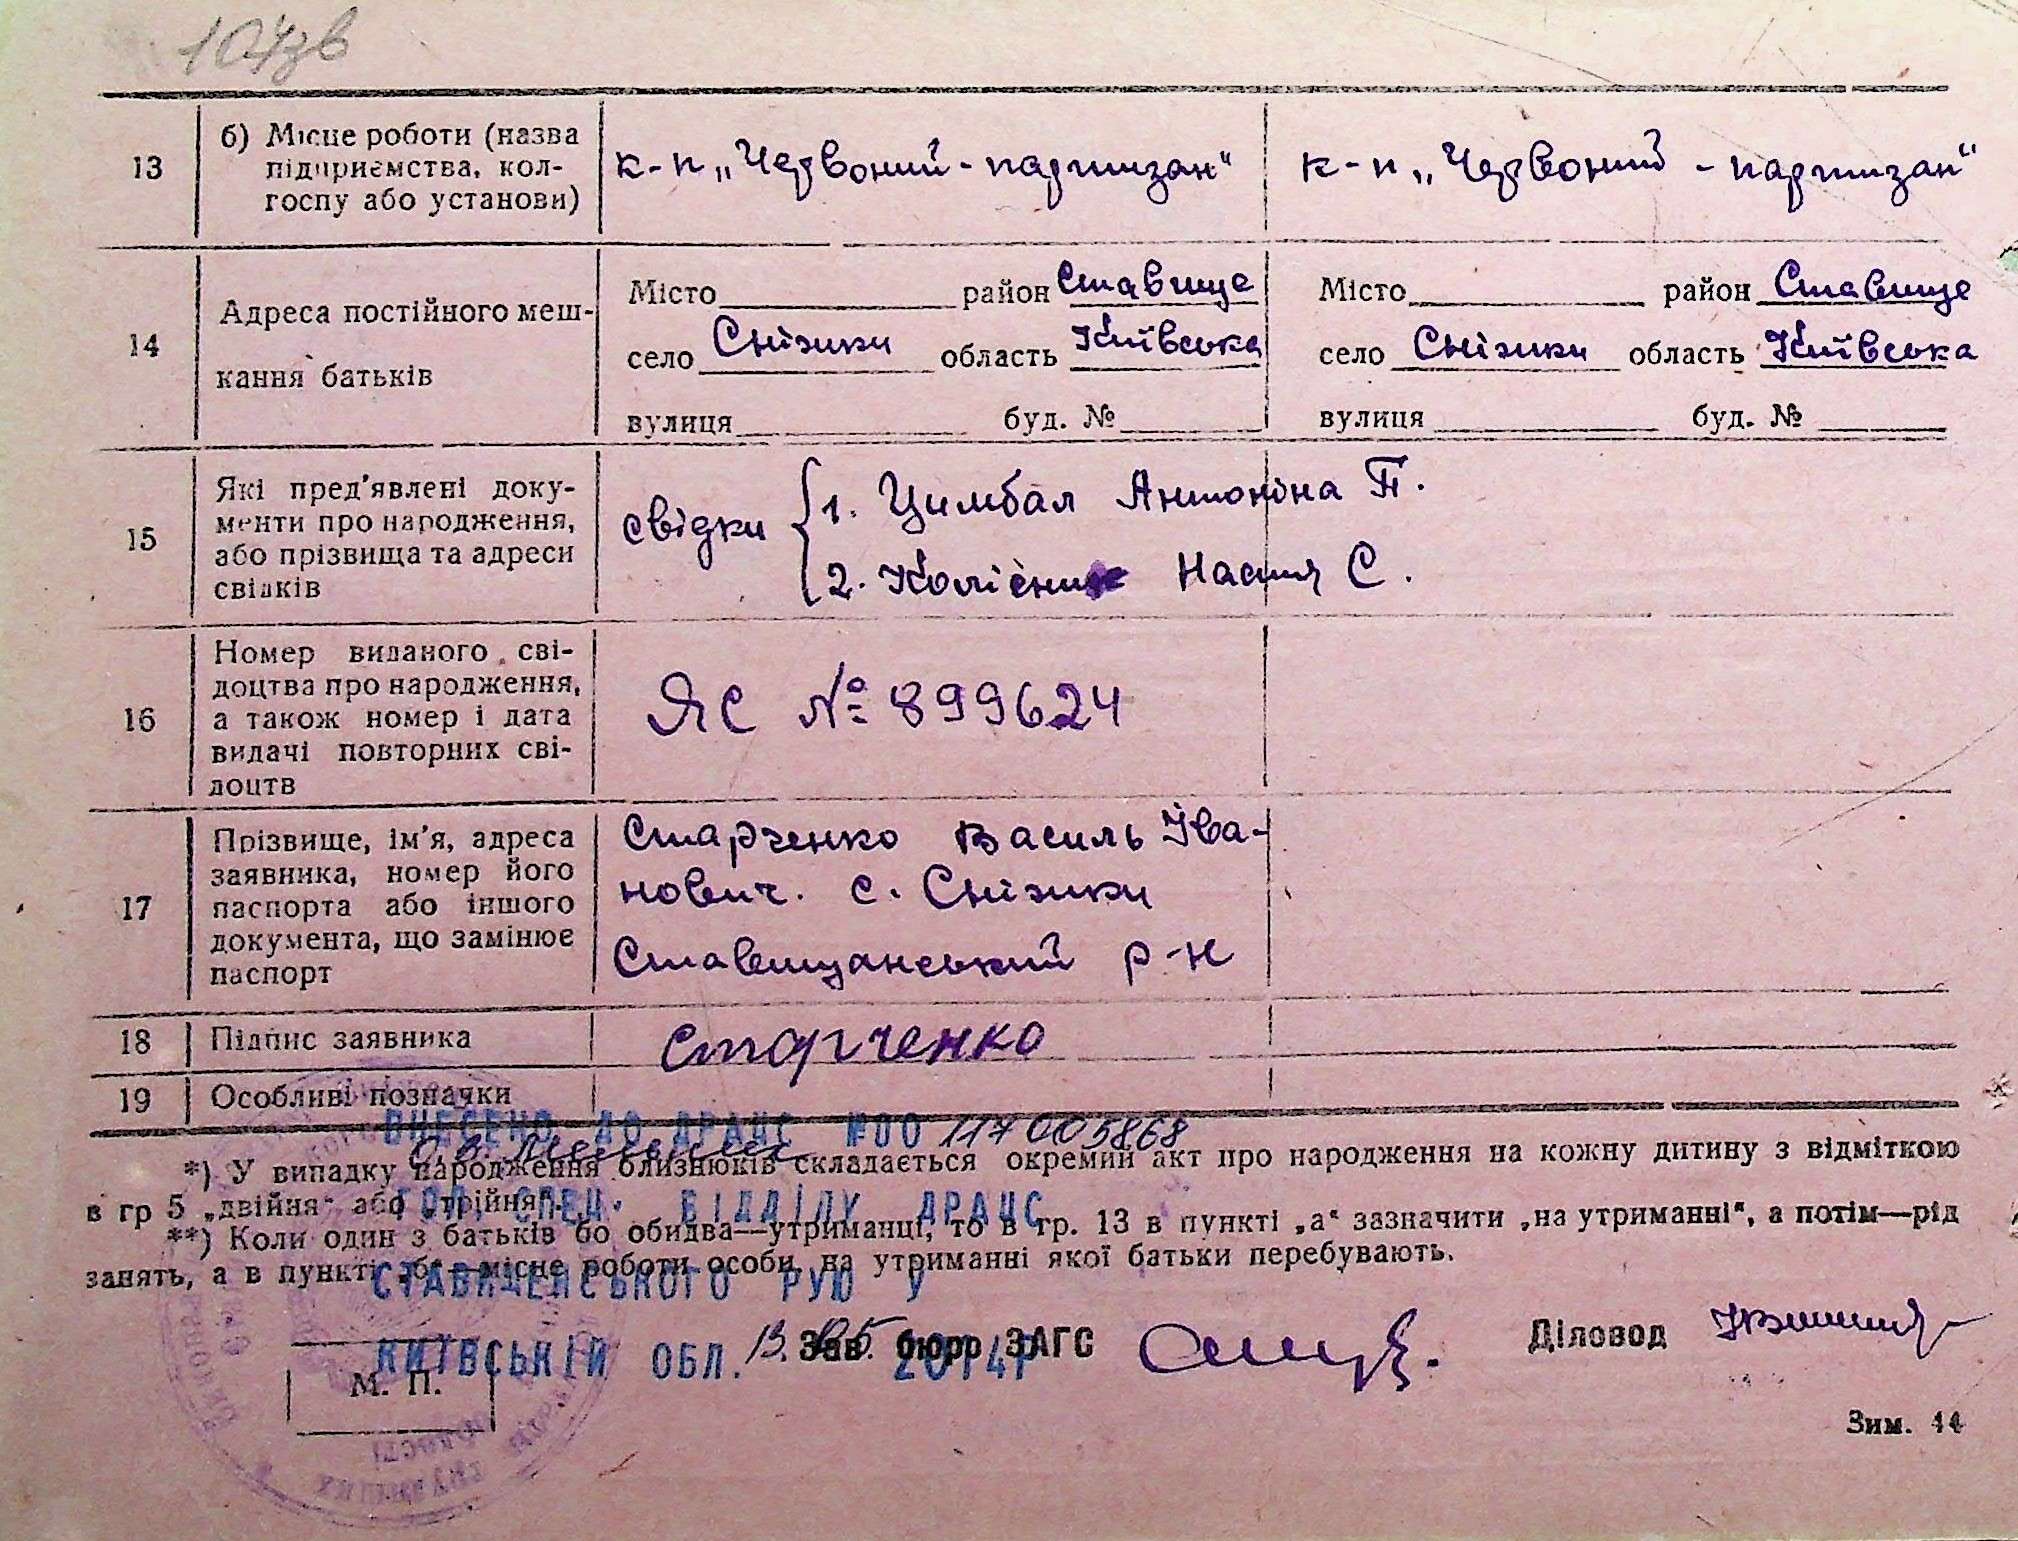 104зв
13
б) Місце роботи (назва
підприємства, кол-
госпу або установи)
к-п „Червоний-партизан"
к-п „Червоний - партизан"
14
Адреса постійного меш-
кання батьків
Місто район Ставище
село Сніжки область Київська
вулиця буд. №
Місто район Ставище
село Сніжки область Київська
вулиця буд. №
15
Які пред'явлені доку-
менти про народження,
або прізвища та адреси
свідків
свідки
1. Цимбал Антоніна П.
2. Колісник Настя С.
16
Номер виданого сві-
доцтва про народження,
а також номер і дата
видачі повторних сві-
доцтв
ЯС № 899624
17
Прізвище, ім'я, адреса
заявника, номер його
паспорта або іншого
документа, що замінює
паспорт
Старченко Василь Іва-
нович. с. Сніжки
Ставищанський р-н
18
Підпис заявника
Старченко
19
Особливі позначки
ВНЕСЕНО ДО ДРАЦС №00117005868
*) У випадку народження близнюків складається окремий акт про народження на кожну дитину з відміткою
в гр 5 „двійня" або „трійня".
ГОЛ. СПЕЦ. ВІДДІЛУ ДРАЦС
**) Коли один з батьків бо обидва—утриманці, то в гр. 13 в пункті „а" зазначити „на утриманні", а потім—рід
занять, а в пункті „б"—місце роботи особи, на утриманні якої батьки перебувають.
СТАВИЩЕНСЬКОГО РУЮ У
КИЇВСЬКІЙ ОБЛ. 13.05. 2014р
Зав. бюро ЗАГС
Діловод
М. П.
Зим. 44